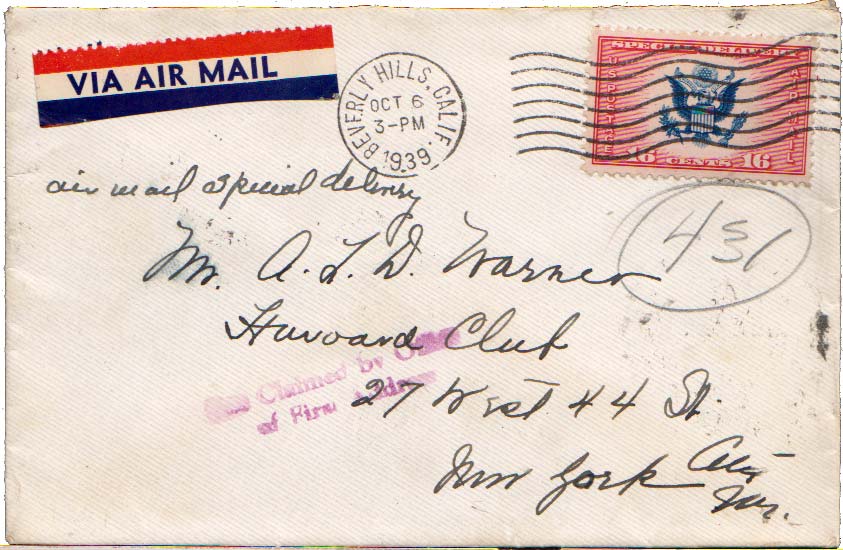 VIA AIR MAIL
BEVERLY HILLS, CALIF.
OCT 6
3-PM
1939
SPECIAL DELIVERY
U.S. POSTAGE
AIR MAIL
16 CENTS 16
air mail special delivery
431
Mr. A. L. D. Warner
Harvard Club
27 West 44 St.
New York City
Claimed by
of First Address